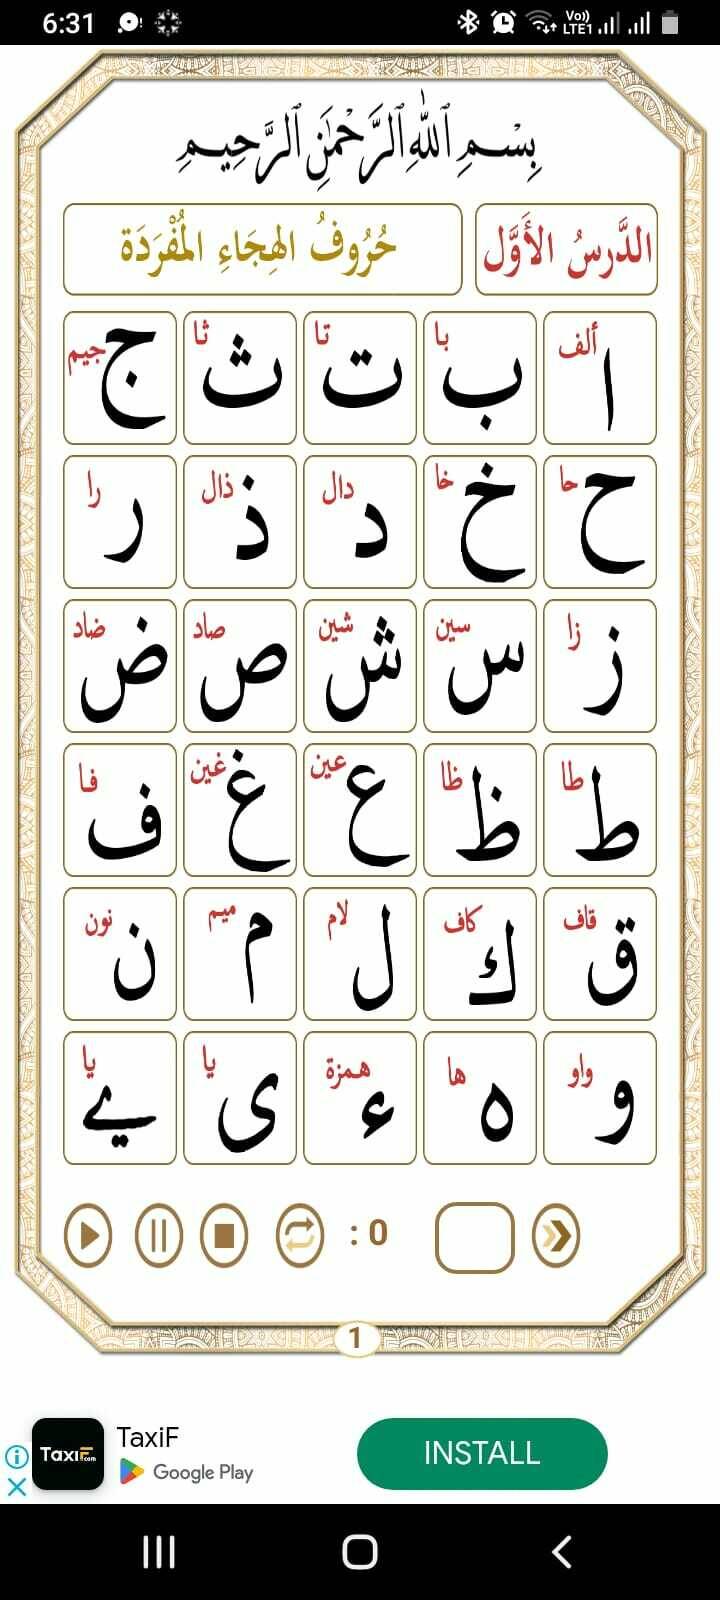 6:31
Vo)) LTE1
بِسْمِ ٱللَّهِ ٱلرَّحْمَٰنِ ٱلرَّحِيمِ
الدَّرسُ الأَوَّل حُرُوفُ الهِجَاءِ المُفْرَدَة
ألف ا با ب تا ت ثا ث جيم ج
حا ح خا خ دال د ذال ذ را ر
زا ز سين س شين ش صاد ص ضاد ض
طا ط ظا ظ عين ع غين غ فا ف
قاف ق كاف ك لام ل ميم م نون ن
واو و ها ه همزة ء يا ى يا ے
: 0
1
TaxiF.com
TaxiF
Google Play
INSTALL